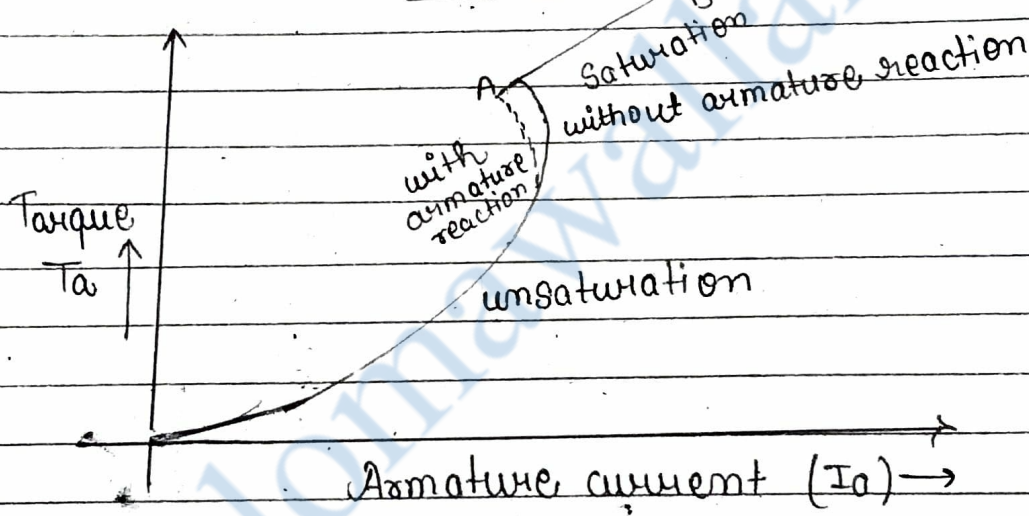 Saturation
without armature reaction
A
with
armature
reaction
Tarque
Ta
unsaturation
Armature current (Ia)